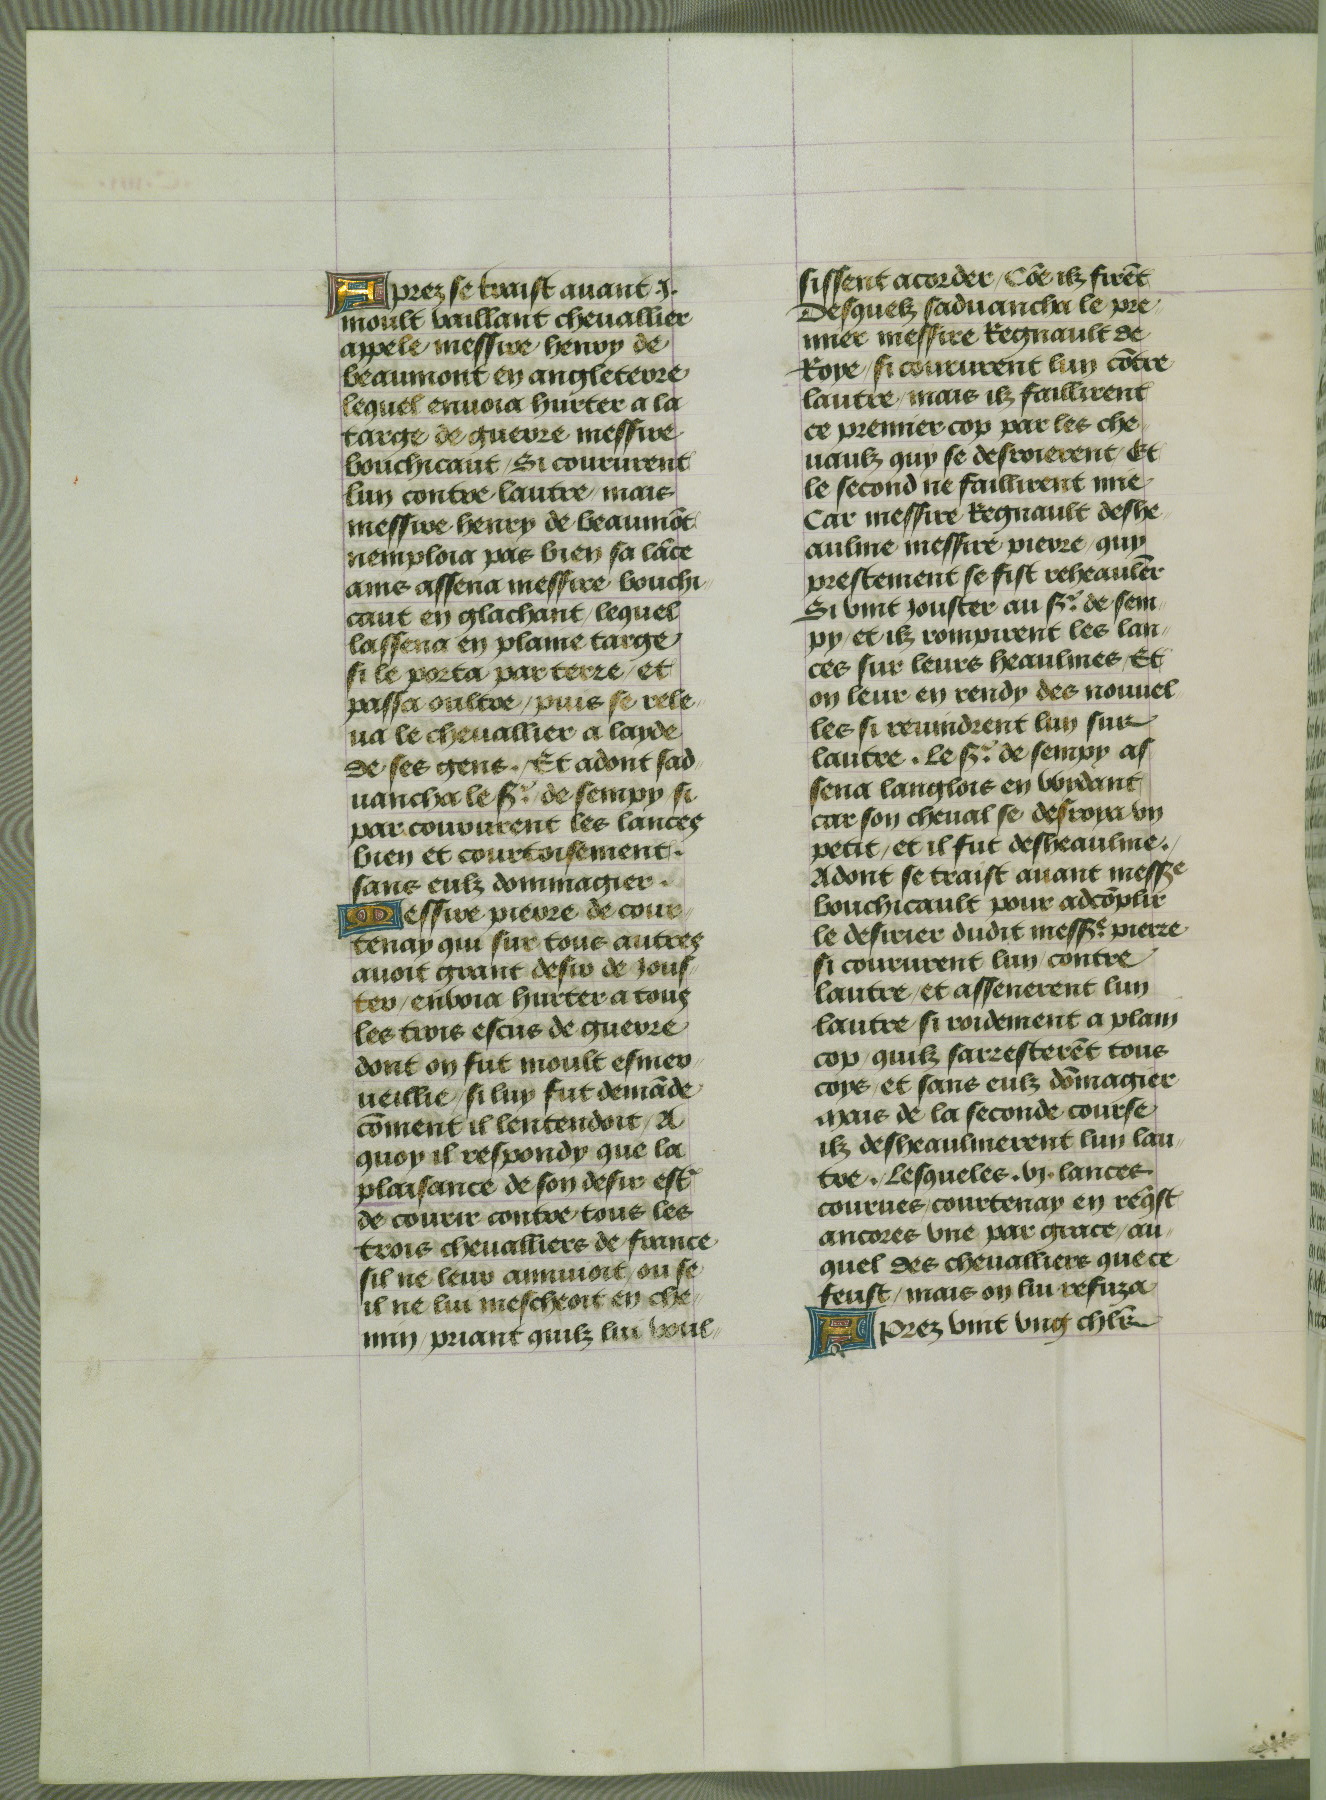 Aprez se traist auant .j.
moult vaillant cheuallier
appele messire henry de
beaumont en angleterre
lequel enuoia hurter a la
targe de guerre messire
bouchicaut / Si coururent
lun contre lautre / mais
messire henry de beaumōt
nemploia pas bien sa lāce
ains assena messire bouchi
caut en glachant / lequel
lassena en plaine targe
si le porta par terre / et
passa oultre / puis se rele
ua le cheuallier a layde
de ses gens . Et adont sad
uancha le sr. de sempy si
par coururent les lances
bien et courtoisement .
sans eulz dommagier .
Messire pierre de cour
tenay qui sur tous autres
auoit grant desir de jous
ter / enuoia hurter a tous
les trois escus de guerre
dont on fut moult esmer
ueillie / si luy fut demāde
cōment il lentendoit / A
quoy il respondy que la
plaisance de son desir est
de courir contre tous les
trois cheualliers de france
sil ne leur annuioit / ou se
il ne lui mescheoit en che
min / priant quilz lui voul
sissent acorder / Cōe ilz firēt
Desquelz saduancha le pre
mier messire Regnault de
Roye / si coururent lun cōtre
lautre / mais ilz faillirent
ce premier cop par les che
uaulz quy se desroierent / Et
le second ne faillirent mie
Car messire Regnault deshe
aulme messire pierre / quy
prestement se fist reheaulēr
Si vint jouster au sr. de sem
py / et ilz rompirent les lan
ces sur leurs heaulmes / Et
on leur en rendy des nouuel
les si reuindrent lun sur
lautre . Le sr. de sempy as
sena langlois en vuidant
car son cheual se desroya vn
petit / et il fut desheaulme .
Adont se traist auant messre
bouchicault pour adcōplir
le desirier dudit messre pierre
si coururent lun contre
lautre / et assenerent lun
lautre si roidement a plain
cop / quilz sarresterēt tous
coys / et sans eulz dōmagier
Mais de la seconde course
ilz desheaulmerent lun lau
tre . Lesqueles .vj. lances
courues / courtenay en reqst
ancores vne par grace / au
quel des cheualliers que ce
feust / mais on lui refuza
Aprez vint vng chlr̄